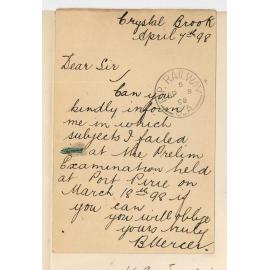 Crystal Brook
April 7th 98
Dear Sir
Can you
kindly inform
me in which
subjects I failed
at the Prelim
Examination held
at Port Pirie on
March 18th 98 if
you can
you will oblige
yours truly
B Mercer.